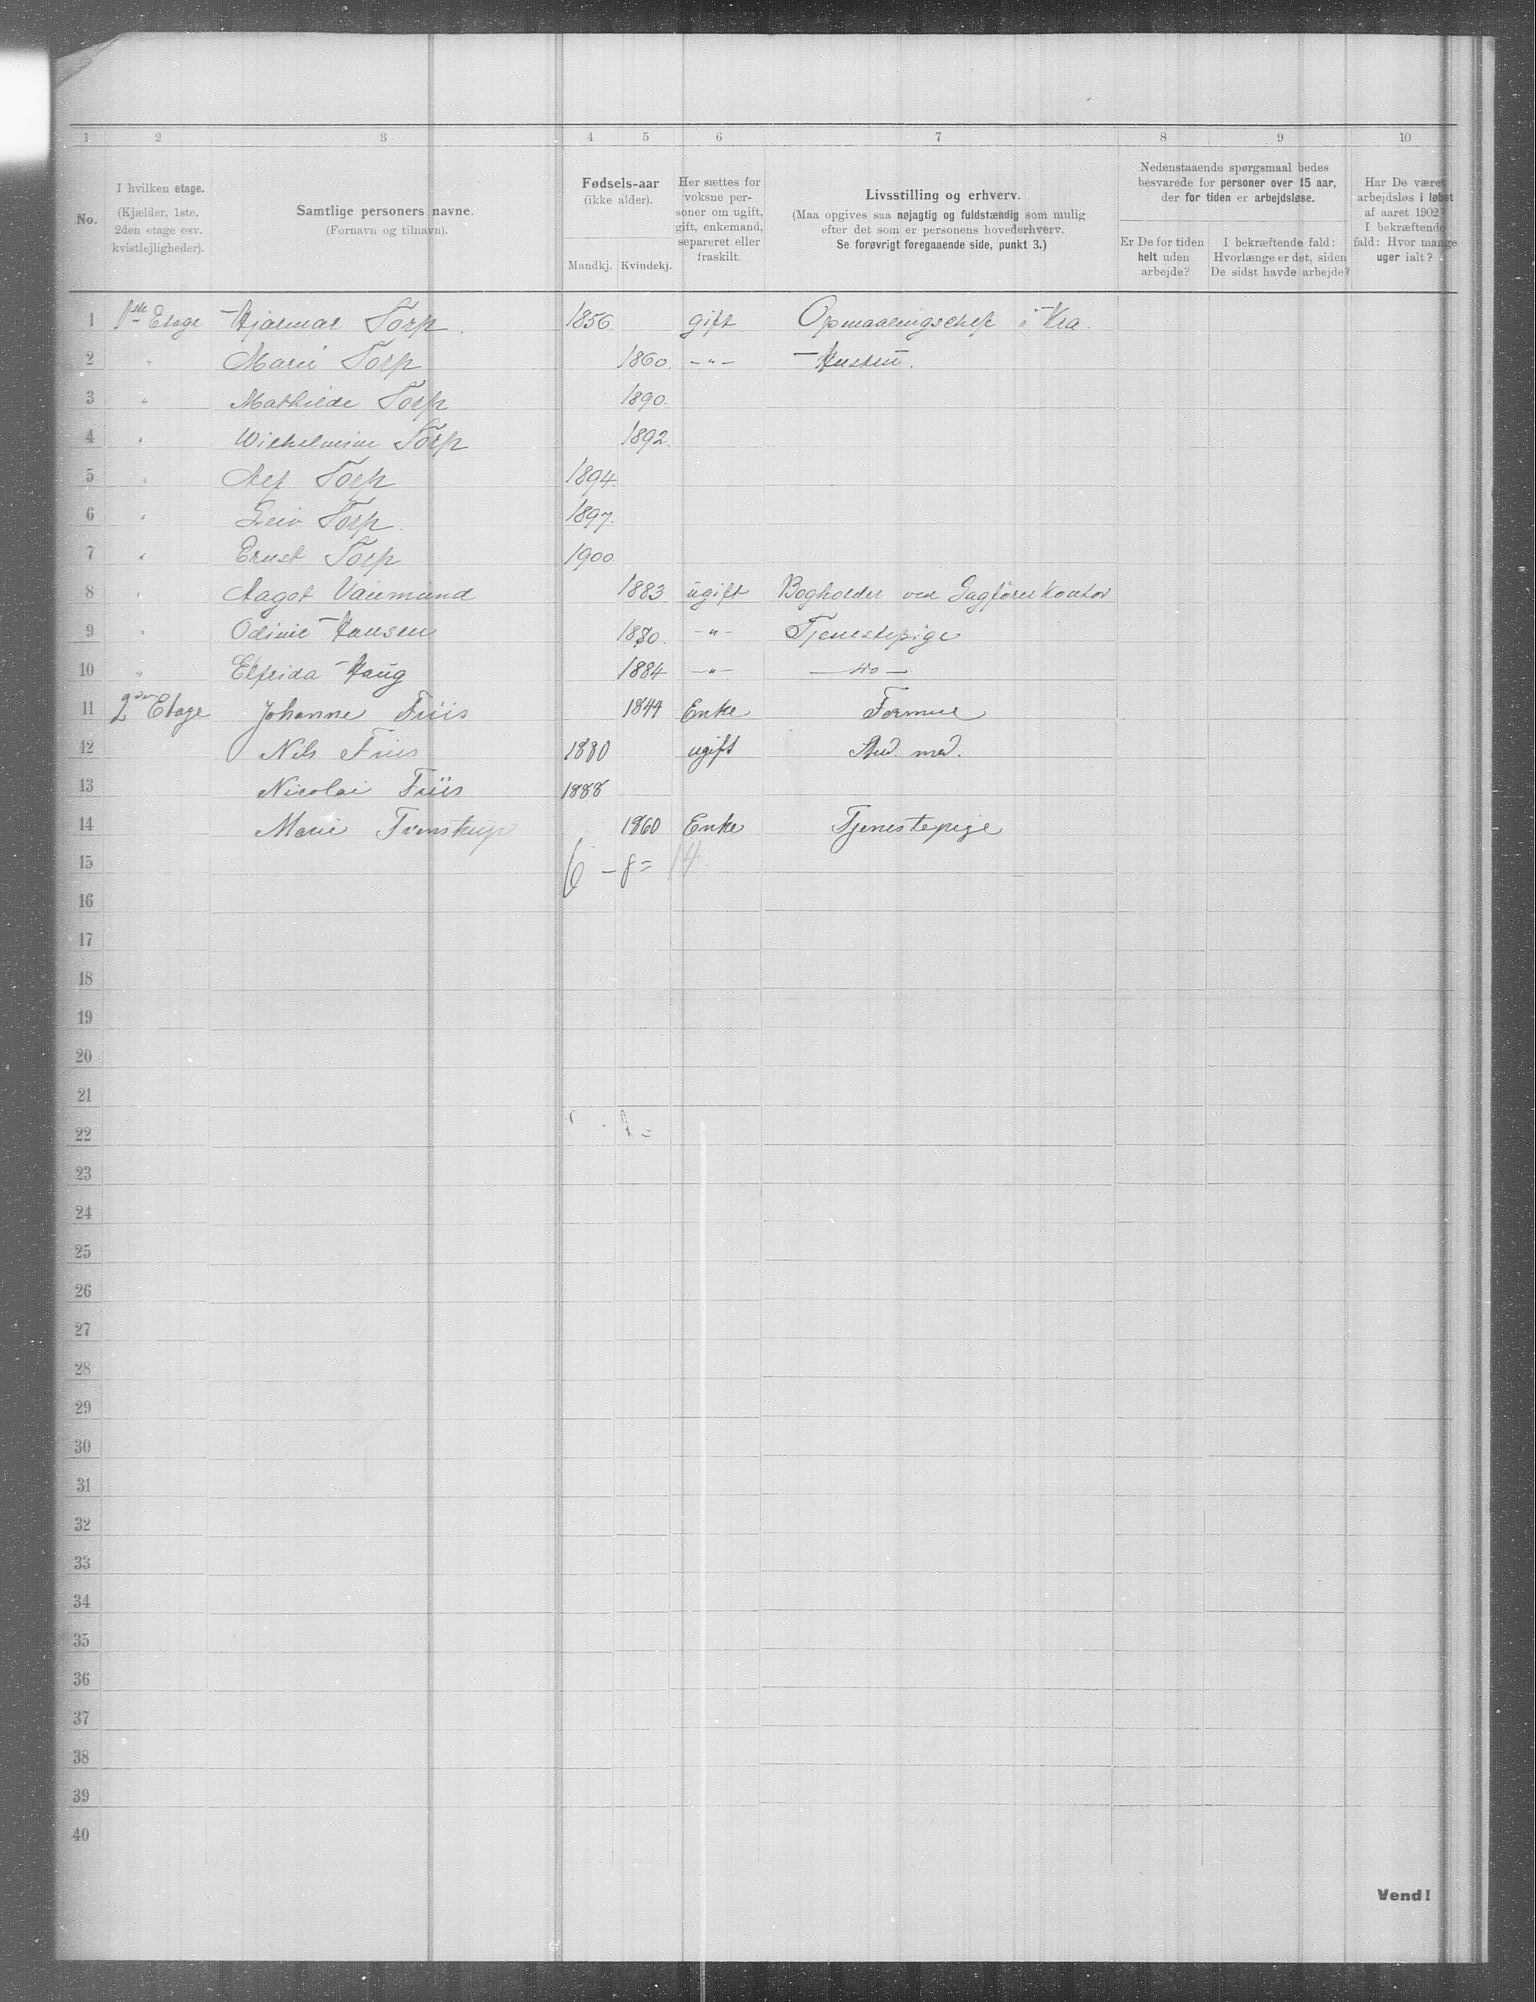 1 2 3 4 5 6 7 8 9 10
No.
I hvilken etage.
(Kjælder, 1ste,
2den etage osv.
kvistlejligheder).
Samtlige personers navne.
(Fornavn og tilnavn).
Fødsels-aar
(ikke alder).
Mandkj. Kvindekj.
Her sættes for
voksne per-
soner om ugift,
gift, enkemand,
separeret eller
fraskilt.
Livsstilling og erhverv.
(Maa opgives saa nøjagtig og fuldstændig som mulig
efter det som er personens hovederhverv.
Se forøvrigt foregaaende side, punkt 3.)
Nedenstaaende spørgsmaal bedes
besvarede for personer over 15 aar,
der for tiden er arbejdsløse.
Er De for tiden
helt uden
arbejde?
I bekræftende fald:
Hvorlænge er det, siden
De sidst havde arbejde?
Har De været
arbejdsløs i løbet
af aaret 1902?
I bekræftende
fald: Hvor mange
uger ialt?
1 1ste Etage Hjalmar Torp. 1856 gift Opmaalingschef i Kra.
2 " Marie Torp 1860. -"- Hustru.
3 " Mathilde Torp 1890.
4 " Wilhelmine Torp 1892.
5 " Alf Torp 1894.
6 " Leiv Torp. 1897.
7 " Ernst Torp 1900
8 " Aagot 1883 ugift Bogholder ved Sagførerkontor
9 " Odinie Hansen 1880. -"- Tjenestepige
10 " Elfrida Haug 1884 -"- — do —
11 2den Etage Johanne Friis 1844 Enke Formue
12 Nils Friis 1880 ugift Stud. med.
13 Nicolai Friis 1888
14 Marie 1860 Enke Tjenestepige
15 6 - 8 = 14
16
17
18
19
20
21
22
23
24
25
26
27
28
29
30
31
32
33
34
35
36
37
38
39
40
Vend!